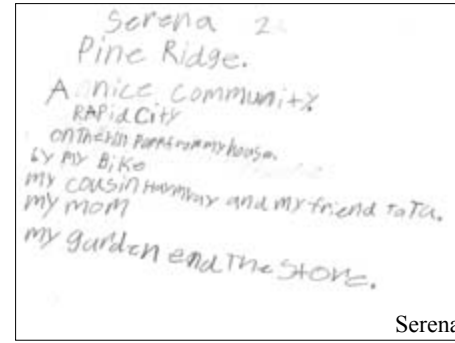 Serena 2
Pine Ridge.
A nice community.
RAPid City
on The Hill from my house.
by my Bike
my cousin and my friend TaTa.
my mom
my garden end The Store.
Serena